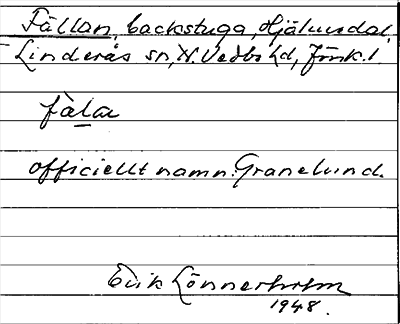 Fällan, backstuga, Hjälmsdal,
Linderås sn, N. Vedbo hd, Jönk. l
fàlar
officiellt namn: Granelund.
Erik Lönnerholm
1948.